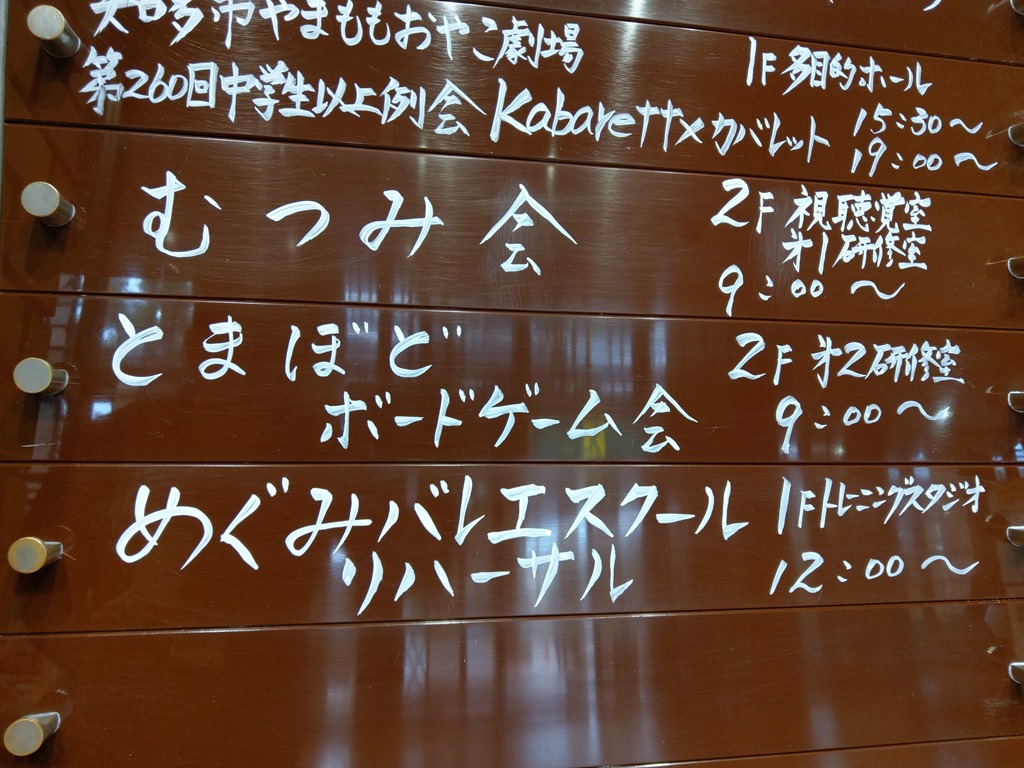 知多市やまももおやこ劇場
1F 多目的ホール
第260回中学生以上例会 Kabarett×カバレット
15:30〜
19:00〜
むつみ会
2F 視聴覚室
才1研修室
9:00〜
とまほど
ボードゲーム会
2F 才2研修室
9:00〜
めぐみバレエスクール
リハーサル
1Fトレーニングスタジオ
12:00〜